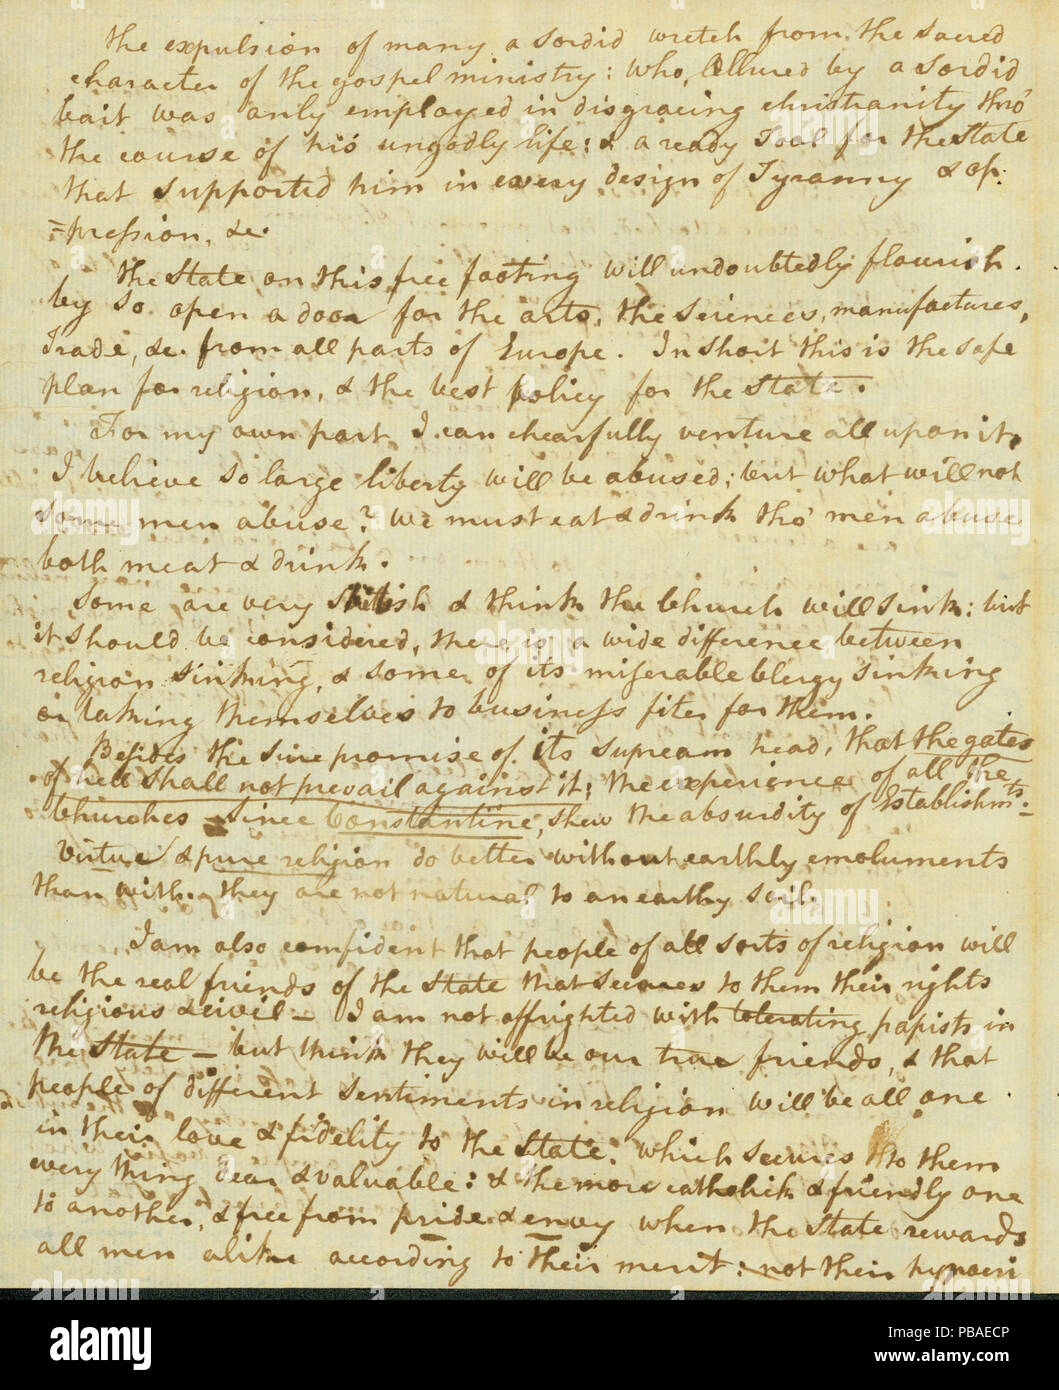 the expulsion of many a sordid wretch from the sacred
character of the gospel ministry: who, allured by a sordid
bait was only employed in disgracing christianity thro'
the course of his ungodly life: & a ready Tool for the State
that supported him in every design of Tyranny & op:
=pression, &c.
the State on this free footing will undoubtedly flourish.
by so open a door for the arts, the sciences, manufactures,
Trade, &c. from all parts of Europe. In short this is the safe
plan for religion, & the best policy for the State.
For my own part I can chearfully venture all upon it.
I believe so large liberty will be abused; but what will not
some men abuse? We must eat & drink tho' men abuse
both meat & drink.
Some are very & think the Church will sink: but
it should be considered, there is a wide difference between
religion sinking, & some of its miserable Clergy sinking
or taking themselves to business fiter for them.
Besides the sure promise of its supream head, that the gates
of hell shall not prevail against it; the experience of all the
Churches since Constantine, shew the absurdity of Establishmts.
Virtue & pure religion do better without earthly emoluments
than with. they are not natural to an earthy soil.
I am also confident that people of all sorts of religion will
be the real friends of the State that secures to them their rights
religious & civil – I am not affrighted with tolerating papists in
the State – but think they will be our true friends, & that
people of different sentiments in religion will be all one
in their love & fidelity to the State, which secures tto them
every thing dear & valuable: & the more catholick & friendly one
to another, & free from pride & envy when the State rewards
all men alike according to their merit: not their hypocri
alamy
Image ID: PBAECP
www.alamy.com